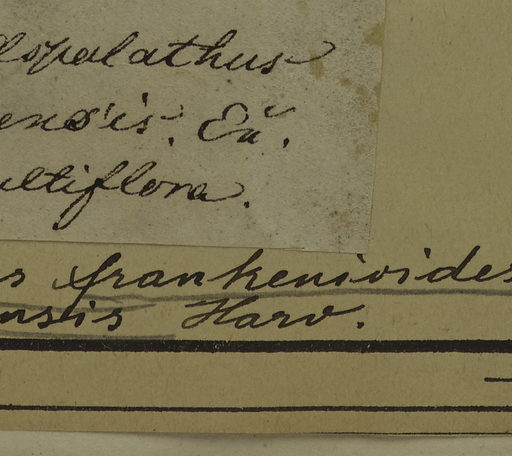 lospalathus
ensis. Eñ.
ultiflora.
s frankenioides
nsis Harv.